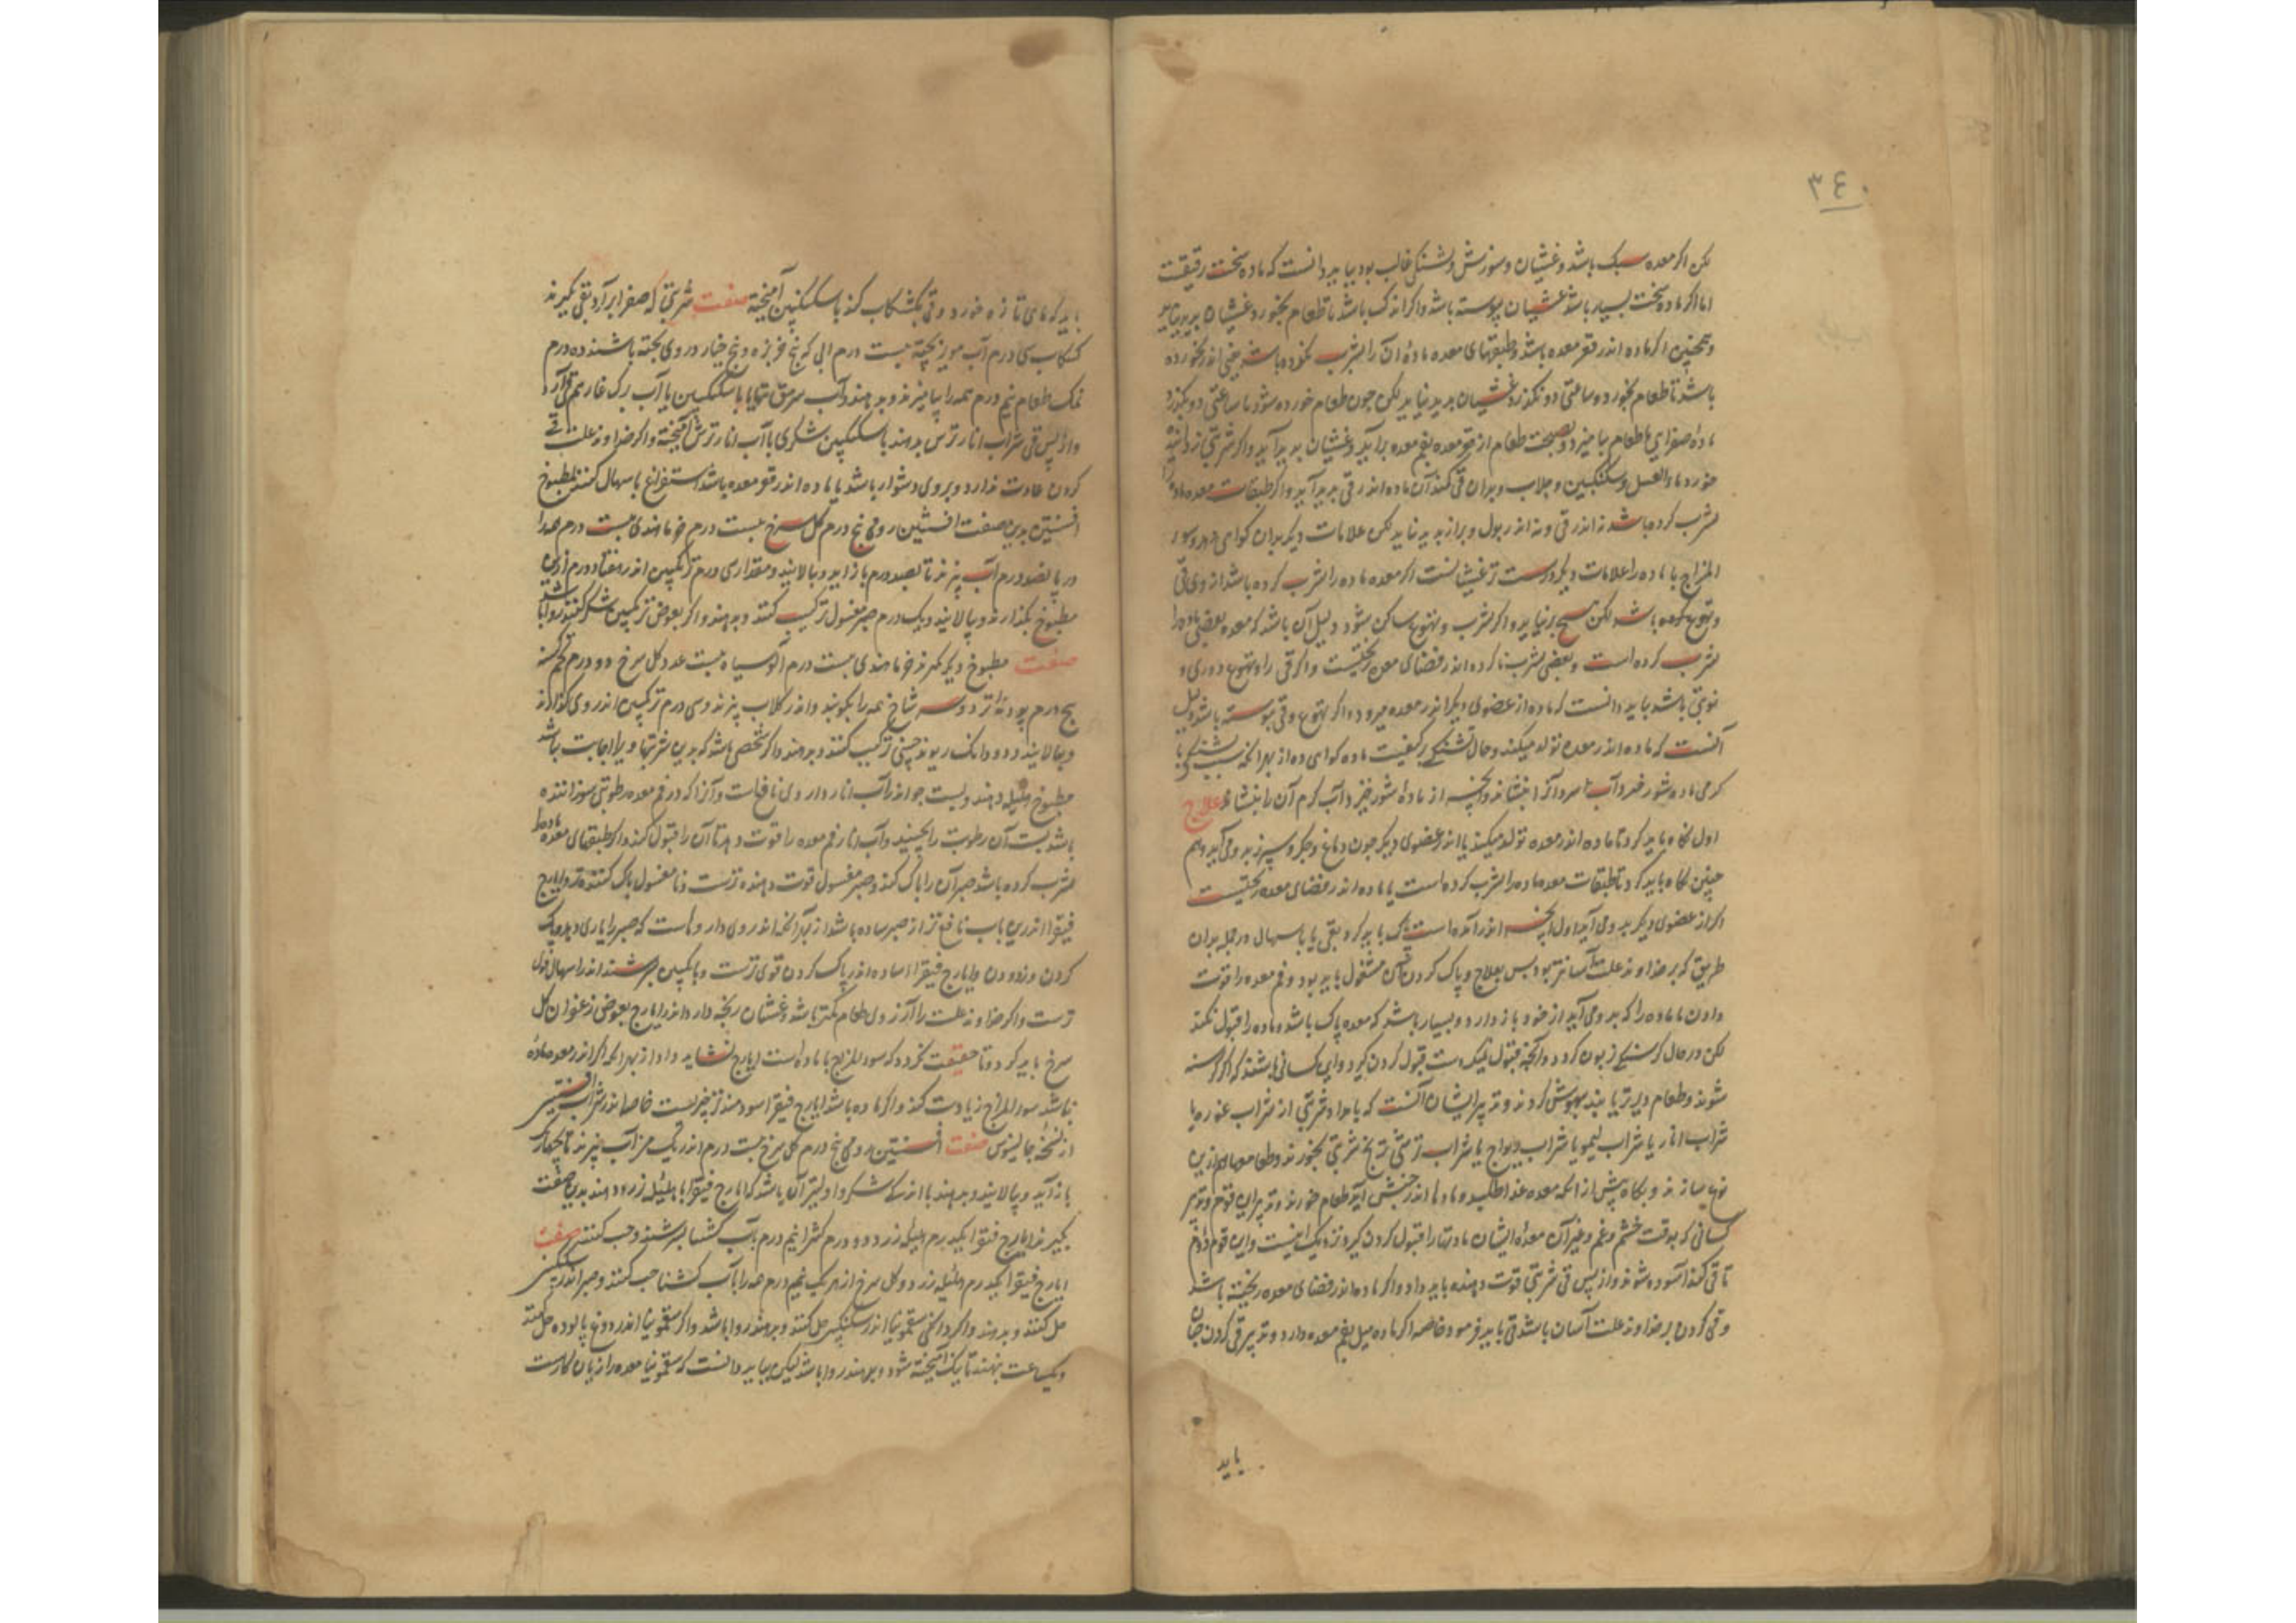 ٣٤٠
لکن اکر معده سبک باشد و غشیان و سوزش و تشنکی غالب بود بباید دانست که ماده سخت رقیقست
اما اکر ماده سخت بسیار باشد غشیان پیوسته باشد و اکر اندک باشد تا طعام نخورد غشیان پدید نیاید
و همچنین اکر ماده اندر قعر معده باشد و طبقهای معده ماده آن را تشرب نکرده باشد یعنی اندر نخورده
باشد تا طعام نخورد و ساعتی دو نکذرد غشیان پدید نیاید لکن جون طعام خورده شود تا ساعتی دو بکذرد
ماده صفرایی با طعام بیامیزد و بصحبت طعام از قعر معده بفم معده برآید و غشیان پدید آید و اکر شربتی
خورد ماء العسل و سکنکبین و جلاب و بدان قی کند آن ماده اندر قی پدید آید و اکر طبقات معده ماده را
تشرب کرده باشد نه اندر قی و نه اندر بول و براز پدید نیاید لکن علامات دیکر بدان کواهی دهد و سوء
المزاج با ماده را علامات دیکر درست تر غشیانست اکر معده ماده را تشرب کرده باشد از وی قی
و تهوع کرده باشد لکن هیچ برنیاید و اکر تشرب و تهوع ساکن شود دلیل آن باشد که معده بعضی ماده را
تشرب کرده است و بعضی تشرب ناکرده اندر فضای معده ریختیست و اکر قی را و تهوع دوری و
نوبتی باشد بباید دانست که ماده از عضوی دیکر اندر معده میرود و اکر تهوع و قی پیوسته باشد دلیل
آنست که ماده اندر معده تولد میکند و حال تشنکی بر کیفیت ماده کواهی دهد از بهر آنکه تشنکی
کرمی ماده شور خیزد و آب سرد آنرا بنشاند و آنچه از ماده شور خیزد آب کرم آن را بنشاند علاج
اول نکاه باید کرد تا ماده اندر معده تولد میکند یا اندر عضوی دیکر جون دماغ و جکر و سپرز بدو می آید و هم
چنین نکاه باید کرد تا طبقات معده ماده را تشرب کرده است یا ماده اندر فضای معده ریختیست
اکر از عضوی دیکر بدو می آید اول آنچه اندر آمده است پاک باید کرد بقی یا باسهال و در جمله بدان
طریق که بر خداوند علت آسانتر بود پس بعلاج و پاک کردن آن مشغول باید بود و فم معده را قوت
دادن تا ماده را که بدو می آید از خود باز دارد و بسیار باشد که معده پاک باشد و ماده را قبول نکند
لکن در حال کرسنکی زبون کردد و آنچه قبول نمیکردست قبول کردن کیرد و این کسانی باشند که اکر کرسنه
شوند و طعام دیرتر یابند بیهوش کردند و تدبیر ایشان آنست که بامداد شربتی از شراب غوره یا
شراب انار یا شراب لیمو یا شراب ریواج یا شراب ترشی ترنج شربتی بخورند و طعام هم ازین
نوع سازند و بکاه پیش از آنکه معده غذا طلبد و مادها اندر جنبش آید طعام خورند و تدبیر این قوم و تدبیر
کسانی که بوقت خشم و غم و غیر آن معده ایشان مادتها را قبول کردن کیرد نزدیک اینست و این قوم
تا قی کنند آسوده شوند و از پس قی شربتی قوت دهنده باید داد و اکر ماده اندر فضای معده ریخته باشد
و قی کردن بر خداوند علت آسان باشد قی باید فرمود خاصه اکر ماده میل بفم معده دارد و تدبیر قی کردن چنان
باید
باید که ماهی تازه خورد و قی بکشکاب کند با سکنکبین آمیخته صفت شربتی که صفرا برآرد بقی بکیرند
کشکاب سی درم آب مویز پخته بیست درم ابی که بیخ خربزه و بیخ خیار در وی پخته باشند ده درم
نمک طعام نیم درم همه را بیامیزند و بدهند و آب سرمق تنها یا با سکنکبین یا آب برک غار هم قی آرد
و از پس قی شراب انار ترش بدهند یا سکنکبین شکری با آب انار ترش آمیخته و اکر خداوند علت قی
کردن عادت ندارد و بر وی دشوار باشد یا ماده اندر قعر معده باشد استفراغ باسهال کنند بمطبوخ
افسنتین بدین صفت افسنتین رومی پنج درم کل سرخ بیست درم خرما هندی بیست درم همه را
در پانصد درم آب بپزند تا بصد درم باز آید و بپالایند و مقداری درم ترنکبین اندر هفتاد درم ازین
مطبوخ بکذارند و بپالایند و یک درم صبر مغسول ترکیب کنند و بدهند و اکر بعوض ترنکبین شکر کنند روا باشد
صفت مطبوخ دیکر بکیرند خرما هندی بیست درم آلوسیاه بیست عدد کل سرخ دو درم تخم کشنه
پنج درم پودنه تر دو سه شاخ همه را بکوبند و اندر کلاب پزند و سی درم ترنکبین اندر وی کذارند
و بپالایند و دو دانک ریوند چینی ترکیب کنند و بدهند و اکر شخصی باشد که بدین شربتها ویرا اجابت نباشد
مطبوخ هلیله دهند و پست جو اندر آب انار داروی نافعست و آنرا که در فم معده رطوبتی سوزاننده
باشد پست آن رطوبت را بچیند و آب انار فم معده را قوت دهد تا آن را قبول نکند و اکر طبقهای معده ماده را
تشرب کرده باشد صبر آن را پاک کند و صبر مغسول قوت دهنده ترست و نا مغسول پاک کننده تر و ایارج
فیقرا اندرین باب نافع تر از صبر ساده باشد از بهر آنکه اندر وی داروهاست که صبر را یاری دهد و پاک
کردن و زدودن و ایارج فیقرا ساده اندر پاک کردن قوی ترست و بانکبین سرشته اندر اسهال قوی
ترست و اکر خداوند علت را آرزوی طعام کمتر باشد و غشیان رنجه دارد اندر ایارج بعوض زعفران کل
سرخ باید کرد و تا حقیقت نکردد که سوء المزاج با ماده است ایارج نشاید داد از بهر آنکه اکر اندر معده ماده
نباشد سوء المزاج زیادت کند و اکر ماده باشد ایارج فیقرا سودمندتر چیزیست خاصه اندر شراب افسنتین
از نسخه جالینوس صفت افسنتین رومی پنج درم کل سرخ بیست درم اندر یک من آب بپزند تا بچهاریک
باز آید و بپالایند و بدهند با اندکی شکر و اولیتر آن باشد که ایارج فیقرا با هلیله زرد دهند بدین صفت
بکیرند ایارج فیقرا یکدرم هلیله زرد دو درم کثیرا نیم درم بآب کشنا بسرشند و حب کنند صفت
ایارج فیقرا یکدرم هلیله زرد و کل سرخ از هر یک نیم درم همه را بآب کشنا حب کنند و صبر اندر سکنکبین
حل کنند و بدهند و اکر دانکی سقمونیا اندر سکنکبین حل کنند و بدهند روا باشد و اکر سقمونیا اندر دوغ پالوده حل کنند
و یکساعت بنهند تا نیک آمیخته شود و بدهند روا باشد لیکن بباید دانست که سقمونیا معده را زیان کارست